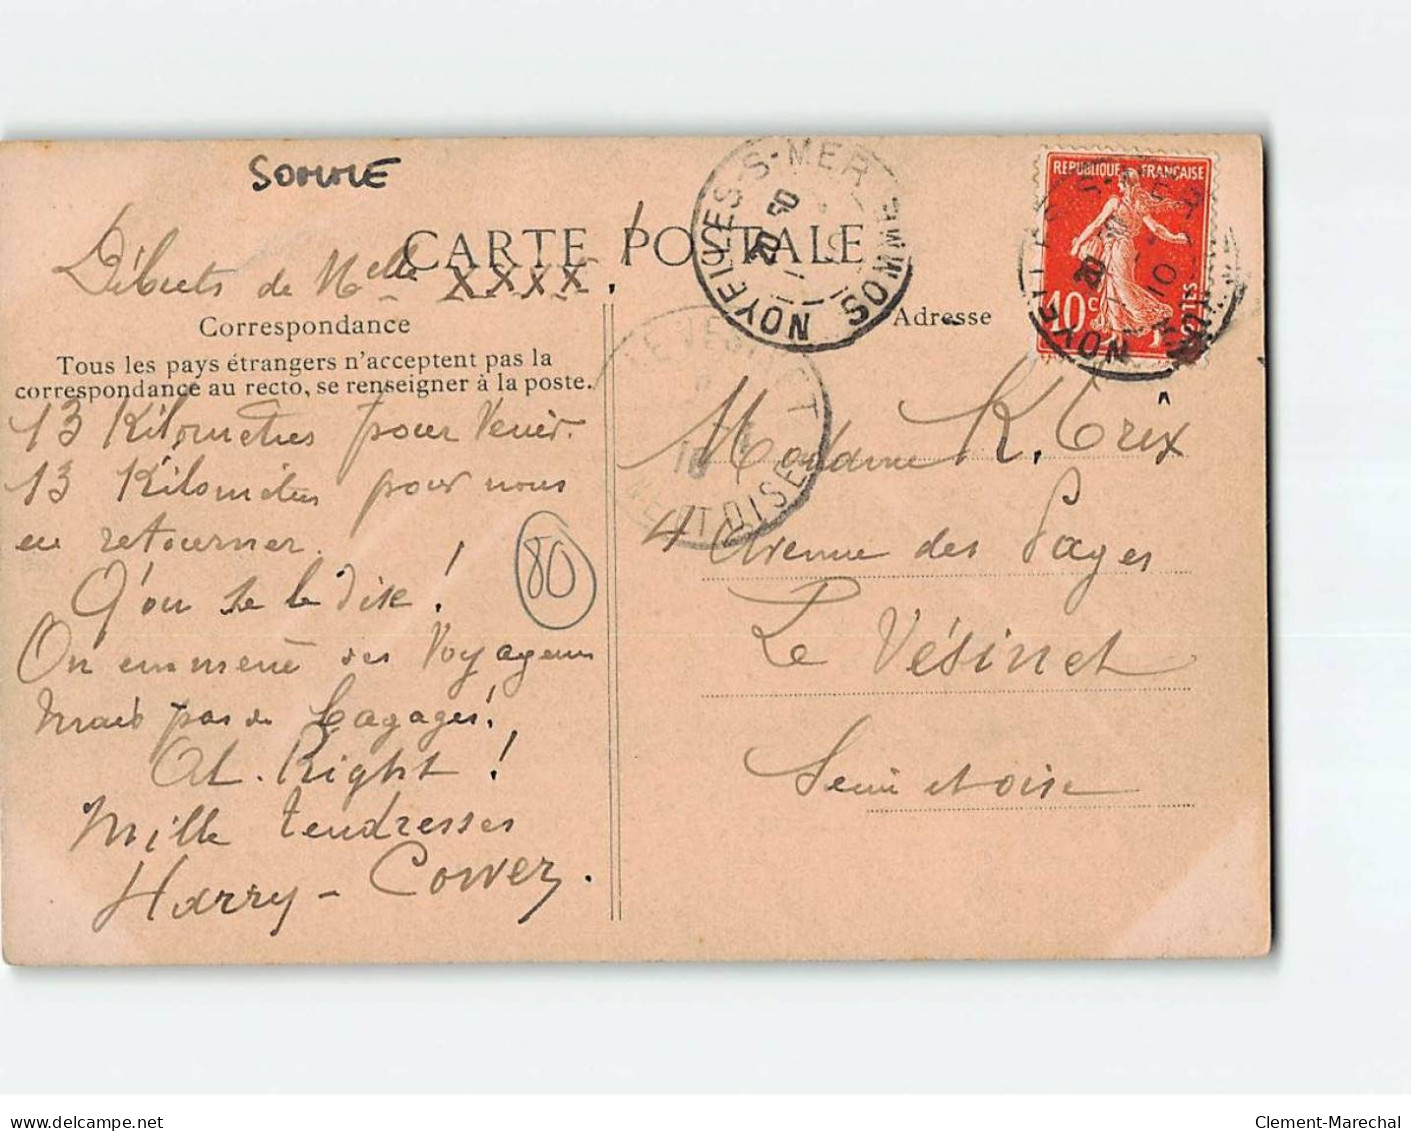 SOMME
Débuts de Melle XXXX!
CARTE POSTALE
Correspondance
Tous les pays étrangers n'acceptent pas la
correspondance au recto, se renseigner à la poste.
13 Kilomètres pour Venir.
13 Kilomètres pour nous
en retourner.
Q'on se le dise!
On emmène des Voyageurs
Mais pas de bagages!
Al. Right!
Mille tendresses
Harry-Cower.
80
NOYELLES-S-MER SOMME
LE VESINET
SEINE-ET-OISE
REPUBLIQUE FRANÇAISE
10c POSTES
Adresse
Madame K. Trix
4 Avenue des Pages
Le Vésinet
Seine et oise
delcampe.net
Clement-Marechal